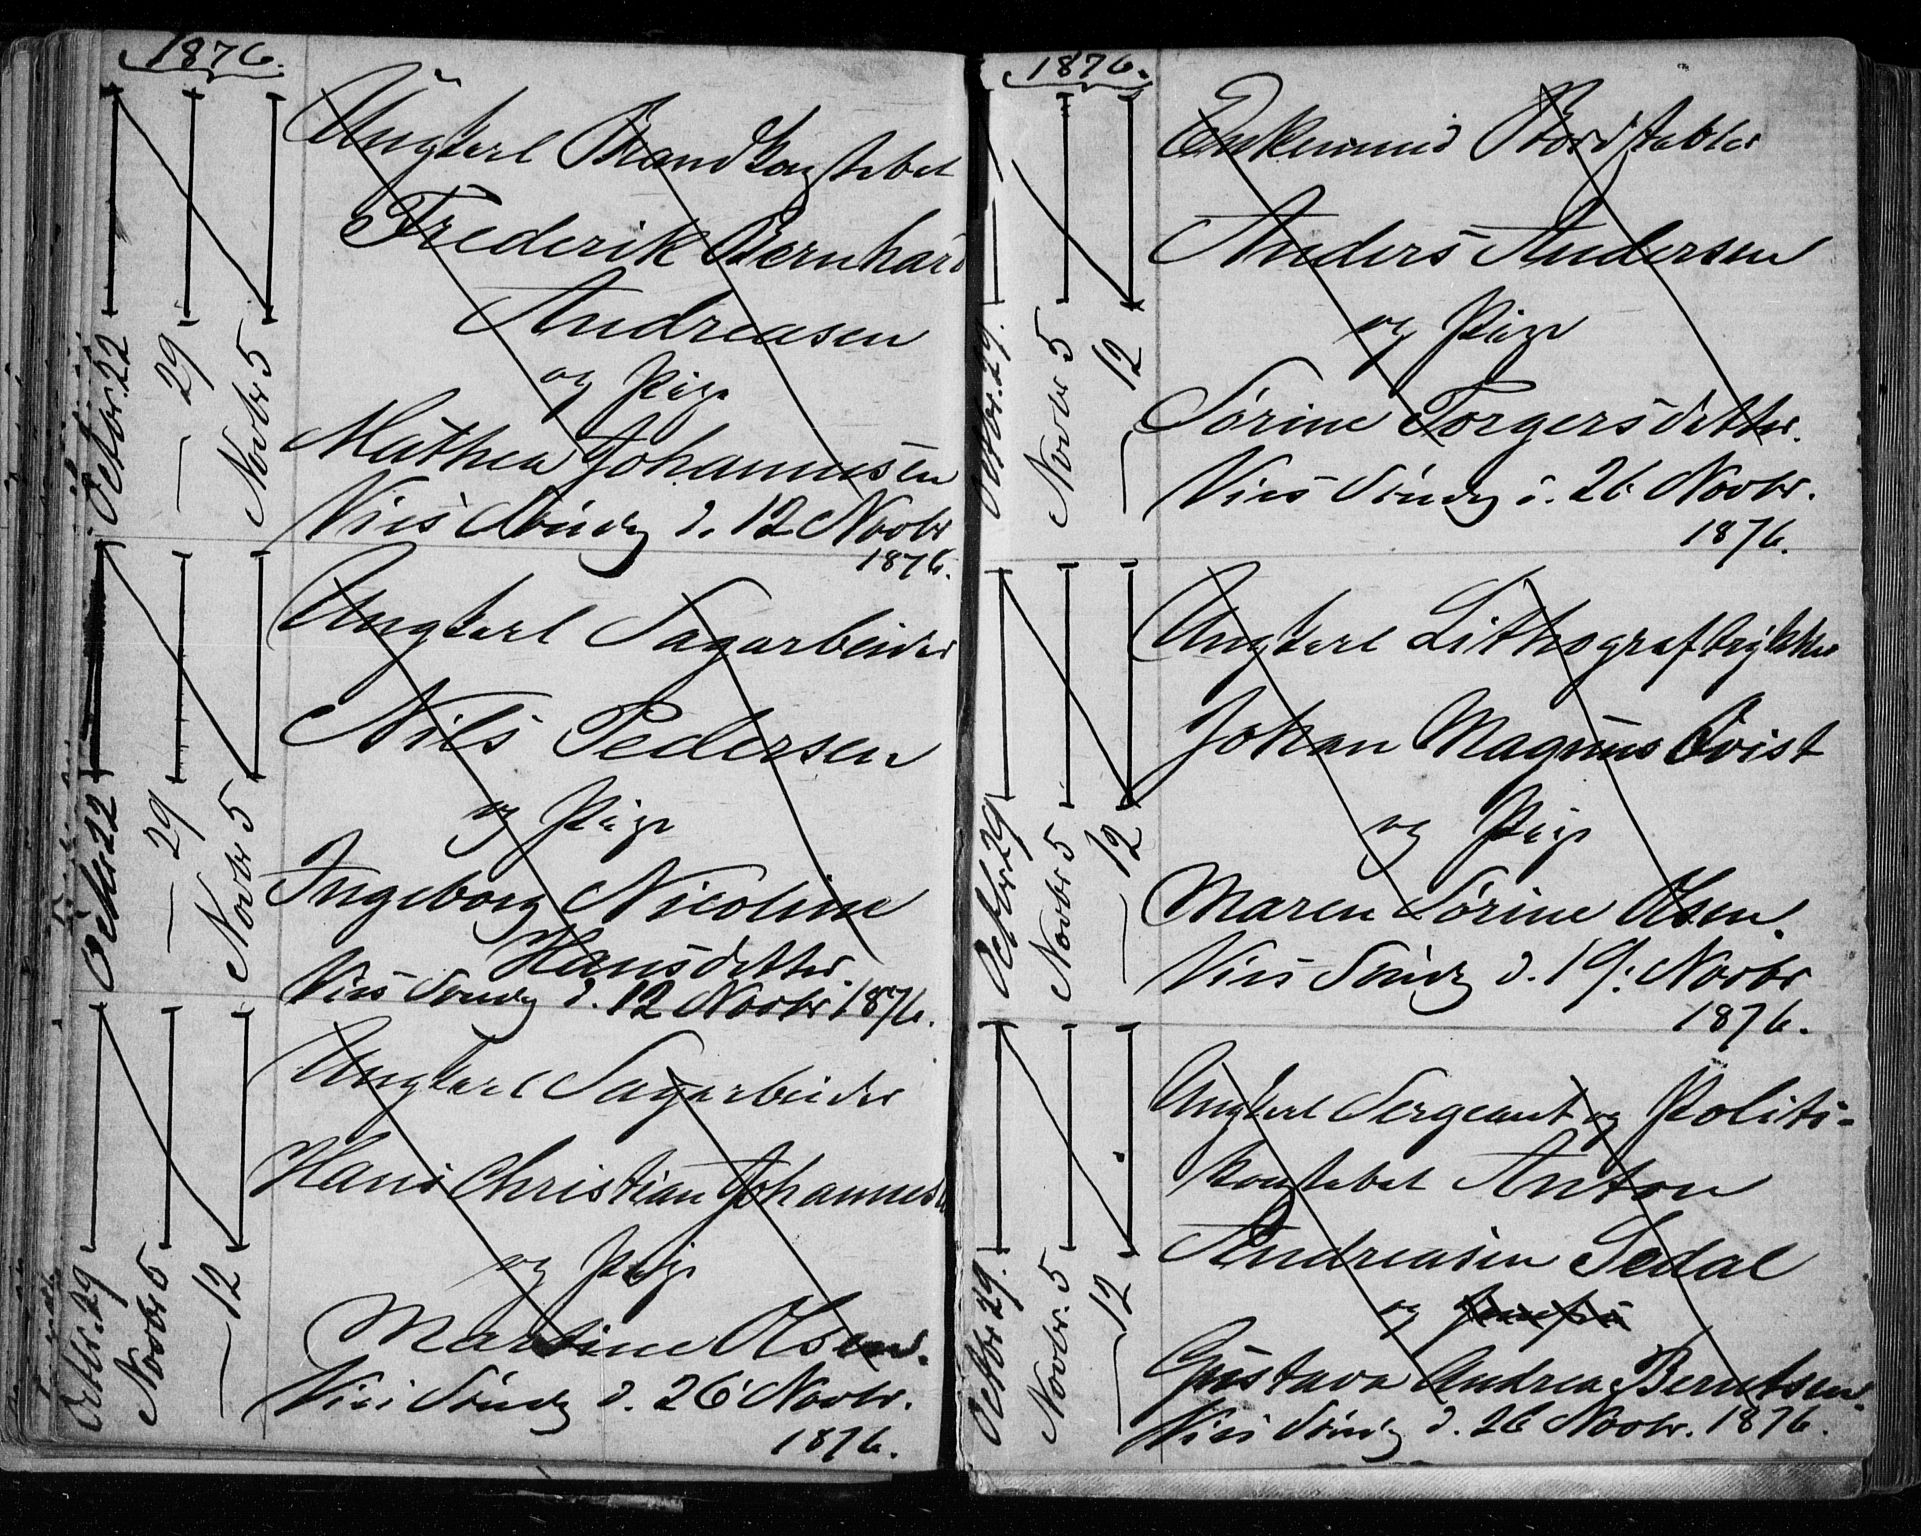 1876.
Octbr. 22
— 29
Novbr 5
Ungkarl Brandkonstabel
Frederik Bernhard
Andreasen
og Pige
Mathea Johannesen
Vies Søndg d. 12 Novbr
1876.
Octbr 22
— 29
Novbr 5
Ungkarl Sagarbeider
Nils Pedersen
og Pige
Ingeborg Nicoline
Hansdatter.
Vies Søndg d. 12 Novbr. 1876.
Octbr. 29
Novbr 5
— 12
Ungkarl Sagarbeider
Hans Christian Johannesen
og Pige
Martine Olsen.
Vies Søndg d. 26 Novbr.
1876.
1876.
Octbr. 29.
Novbr 5
— 12
Enkemand
Anders Andersen
og Pige
Sørine Torgersdatter.
Vies Søndg d. 26 Novbr.
1876.
Octbr 29
Novbr 5
— 12
Ungkarl Lithograftrykker
Johan Magnus Qvist
og Pige
Maren Sørine Olsen.
Vies Søndg d. 19. Novbr
1876.
Octbr 29.
Novbr. 5
— 12
Ungkarl Sergeant og Politi-
konstabel Anton
Andreasen Sedal
og
Gustava Andrea Berntsen.
Vies Søndg d. 26 Novbr. 1876.